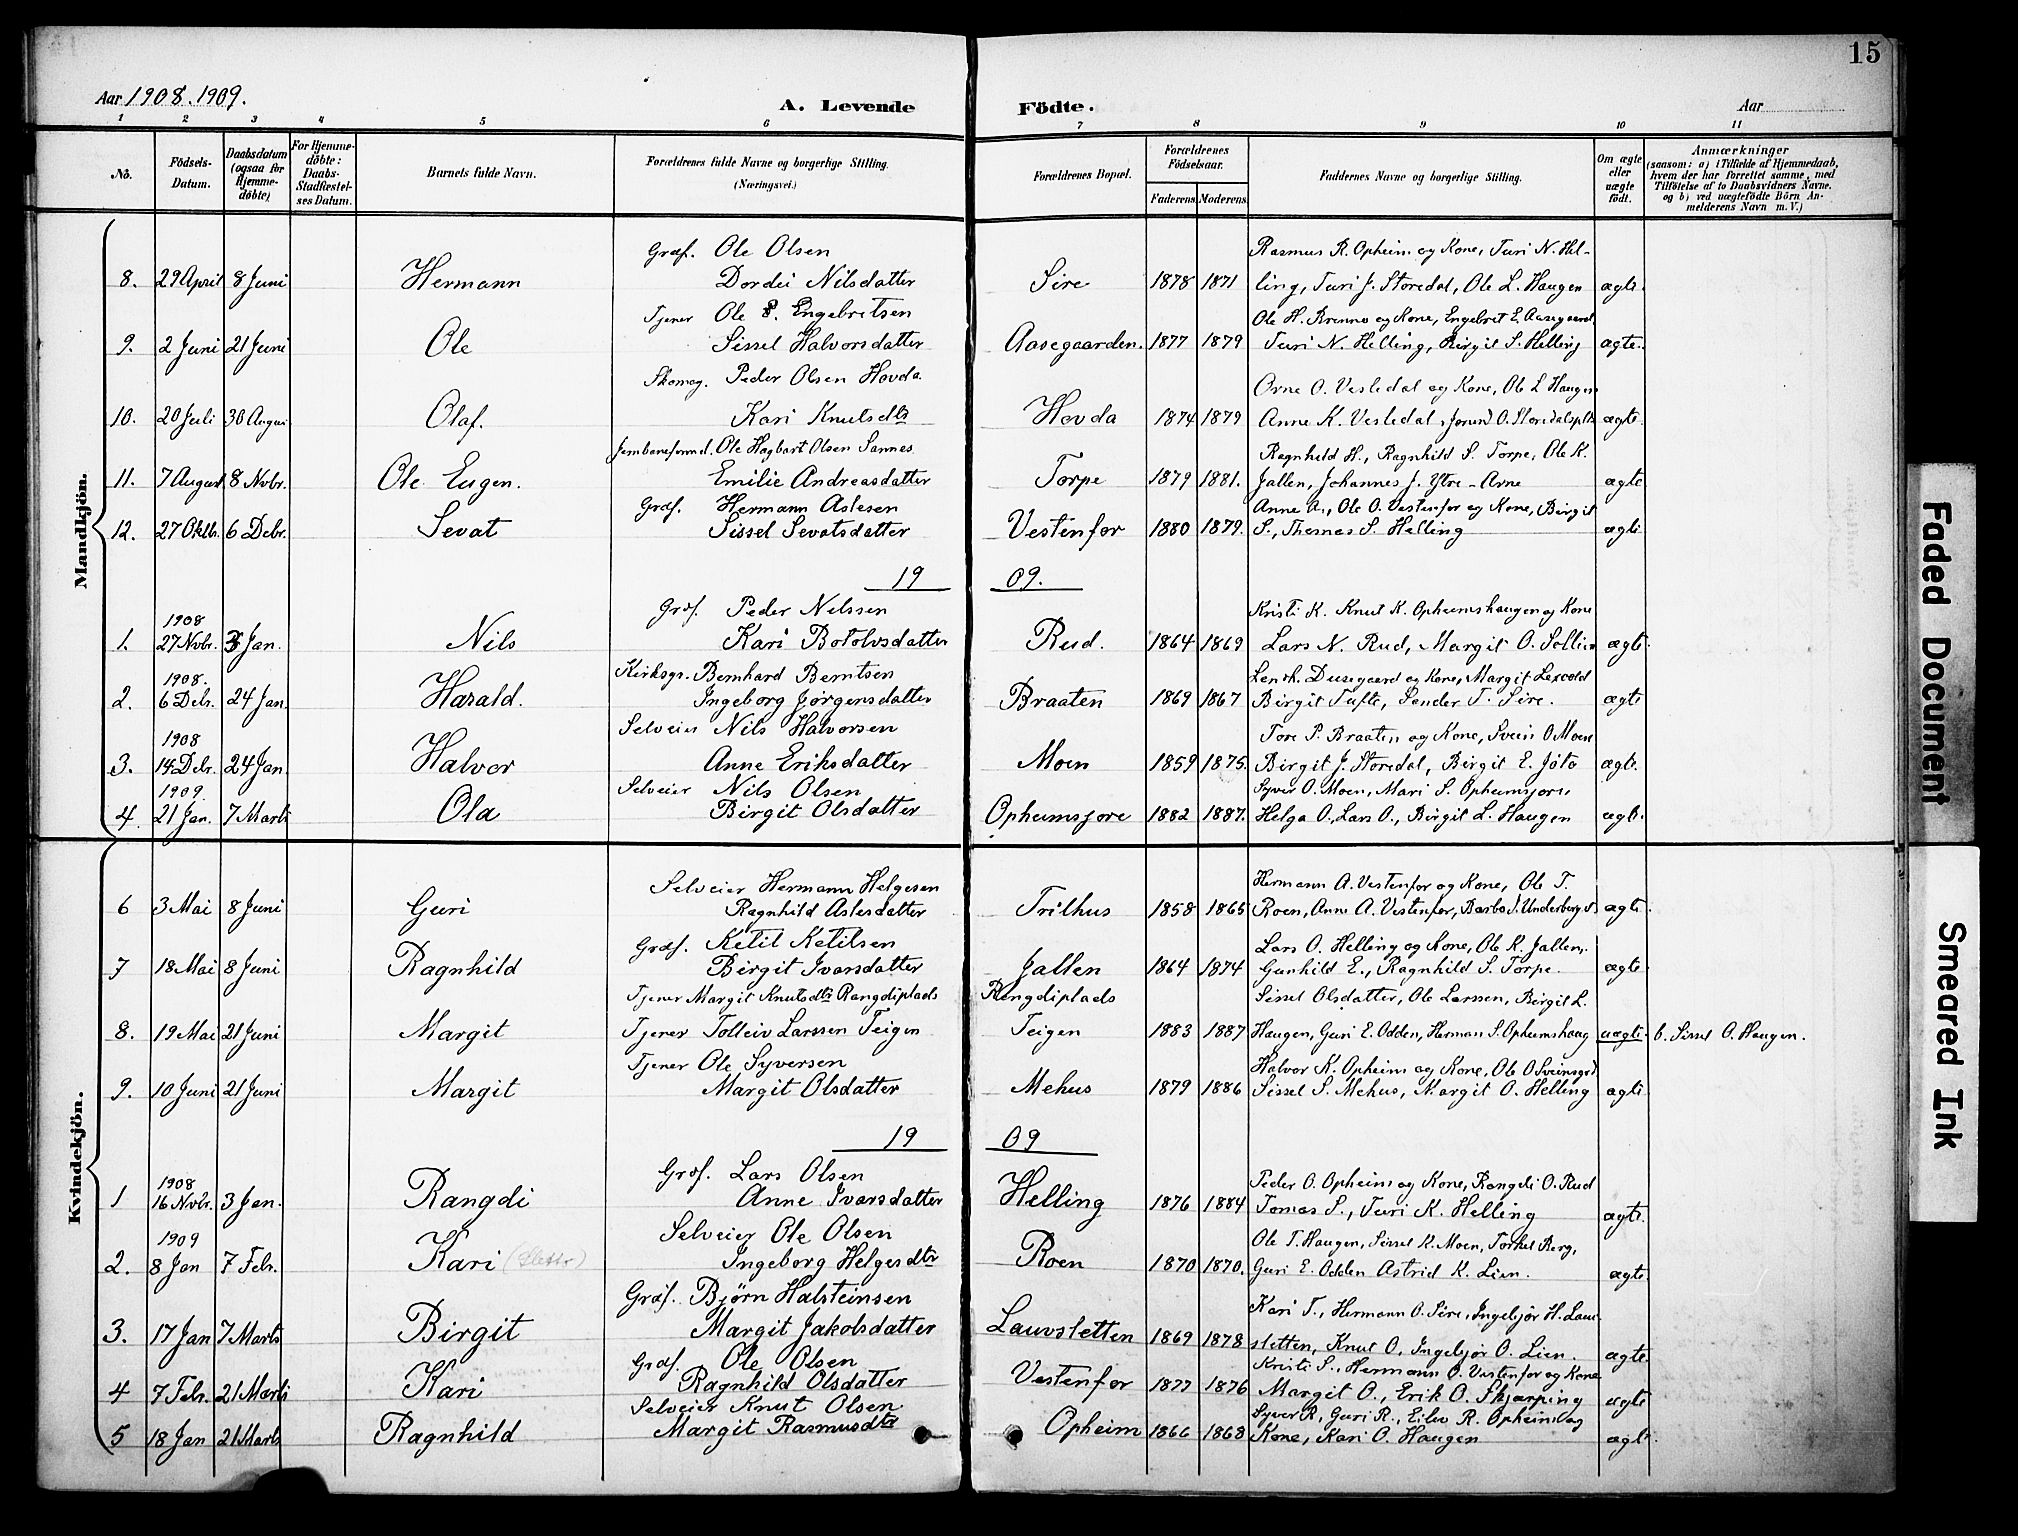 15
Aar 1908. 1909.
A. Levende Födte.
Aar
1 2 3 4 5 6 7 8 9 10 11
No.
Födsels-Datum.
Daabsdatum (ogsaa for Hjemme-döbte)
For Hjemme-döbte: Daabs-Stadfæstel-ses Datum.
Barnets fulde Navn.
Forældrenes fulde Navne og borgerlige Stilling. (Næringsvei.)
Forældrenes Bopæl.
Forældrenes Födselsaar.
Faderens Moderens
Faddernes Navne og borgerlige Stilling.
Om ægte eller uægte födt.
Anmærkninger
(saasom: a) i Tilfælde af Hjemmedaab, hvem der har forrettet samme, med Tilföielse af to Daabsvidners Navne, og b) ved uægtefödte Börn An-melderens Navn m. V.)
Mandkjön.
Graf. Ole Olsen Rasmus R. Opheim og Kone, Turi N. Hel-
8. 29 April 8 Juni Hermann Dordei Nilsdatter Sire 1878 1871 ling, Turi J. Storedal, Ole L. Haugen ægte.
Tjener Ole E. Engebretsen Ole H. Brenno og Kone, Engebret E. Aasegaard
9. 2 Juni 21 Juni Ole Sissel Halvorsdatter Aasegaarden. 1877 1879 Turi N. Helling, Birgit S. Helling ægte.
Skomag. Peder Olsen Hovda. Arne O. Vesledal og Kone, Ole L Haugen
10. 20 Juli 30 Augus Olaf. Kari Knutsdtr Hovda 1874 1879 Anne K. Vesledal, Jorund O. Storedalsplts ægte.
Jernbaneformd. Ole Hagbart Olsen Sannes Ragnhild H., Ragnhild S. Torpe, Ole K.
11. 7 August 8 Novbr. Ole Eugen. Emilie Andreasdatter Torpe 1879 1881. Jallen, Johannes J. Ytre-Arne ægte
Graf. Hermann Aslesen Anne A., Ole O. Vestenfor og Kone, Birgit
12. 27 Oktbr. 6 Debr. Sevat Sissel Sevatsdatter Vestenfor 1880 1879. S., Thomas S. Helling ægte
19 09.
1908 Graf. Peder Nelssen Kristi K. Knut K. Opheimshaugen og Kone
1. 27 Novbr. 3 Jan. Nils Kari Botolvsdatter Rud. 1864 1869 Lars N. Rud, Margit O. Sollien ægte.
1908. Kirksgr. Bernhard Berntsen Lensh. Dusegaard og Kone, Margit Lexvold
2. 6 Debr. 24 Jan Harald. Ingeborg Jørgensdatter Braaten 1869 1867 Birgit Tufte, Sander T. Sire. ægte
1908 Selveier Nils Halvorsen Tore P. Braaten og Kone, Svein O Moen
3. 14 Debr. 24 Jan. Halvor Anne Eriksdatter Moen 1859 1875. Birgit J. Storedal, Birgit E. Jóto ægte.
1909. Selveier Nils Olsen Syver O. Moen, Mari S. Opheimsjore,
4. 21 Jan. 7 Marts Ola Birgit Olsdatter Opheimsjore 1882 1887. Helga O., Lars O., Birgit L. Haugen ægte.
Kvindekjön.
Selveier Hermann Helgesen Hermann A. Vestenfor og Kone, Ole T.
6 3 Mai 8 Juni Guri Ragnhild Aslesdatter Trilhus 1858 1865 Roen, Anne A. Vestenfor, Barbo J. Underberg s. ægte.
Graf. Ketil Ketilsen Lars O. Helling og Kone, Ole K. Jallen,
7 18 Mai 8 Juni Ragnhild Birgit Ivarsdatter Jallen 1864 1874 Gunhild E., Ragnhild S. Torpe. ægte
Tjener Margit Knutsdtr Rangdiplads Rangdiplads Sissel Olsdatter, Ole Larssen, Birgit L.
8. 19 Mai 21 Juni Margit Tjener Tolleiv Larssen Teigen Teigen 1883 1887 Haugen, Guri E. Odden, Herman S. Opheimshaug uægte. b. Sissel O. Haugen.
Tjener Ole Syversen Halvor K. Opheim og Kone, Ole O Sveinsgrd
9. 10 Juni 21 Juni Margit Margit Olsdatter Mehus 1879 1886 Sissel S. Mehus, Margit O. Helling ægte
19 09
1908 Graf. Lars Olsen Peder O. Opheim og Kone, Rangdi O. Rud
1 16 Novbr. 3 Jan. Rangdi Anne Ivarsdatter Helling 1876 1884 Tomas S., Turi K. Helling ægte
1909 Selveier Ole Olsen Ole T. Haugen, Sissel K. Moen, Torkel Berg,
2. 8 Jan 7 Febr. Kari Ingeborg Helgesdtr Roen 1870 1870. Guri E. Odden Astrid K. Lien. ægte
Graf. Bjørn Halsteinsen Kari T., Hermann O. Sire, Ingebjør H. Lauv-
3. 17 Jan 7 Marts Birgit Margit Jakobsdatter Lauvsletten 1869 1878 sletten, Knut O, Ingebjør O. Lien. ægte
Graf. Ole Olsen Kristi S., Hermann O. Vestenfor og Kone
4 7 Febr. 21 Marts Kari Ragnhild Olsdatter Vestenfor 1877 1876 Margit O., Erik O. Skjærping ægte
Selveier Knut Olsen Syver R, Guri R., Eilev R. Opheim og
5 18 Jan 21 Marts Ragnhild Margit Rasmusdtr Opheim 1866 1868 Kone, Kari O. Haugen ægte.
Faded Document
Smeared Ink